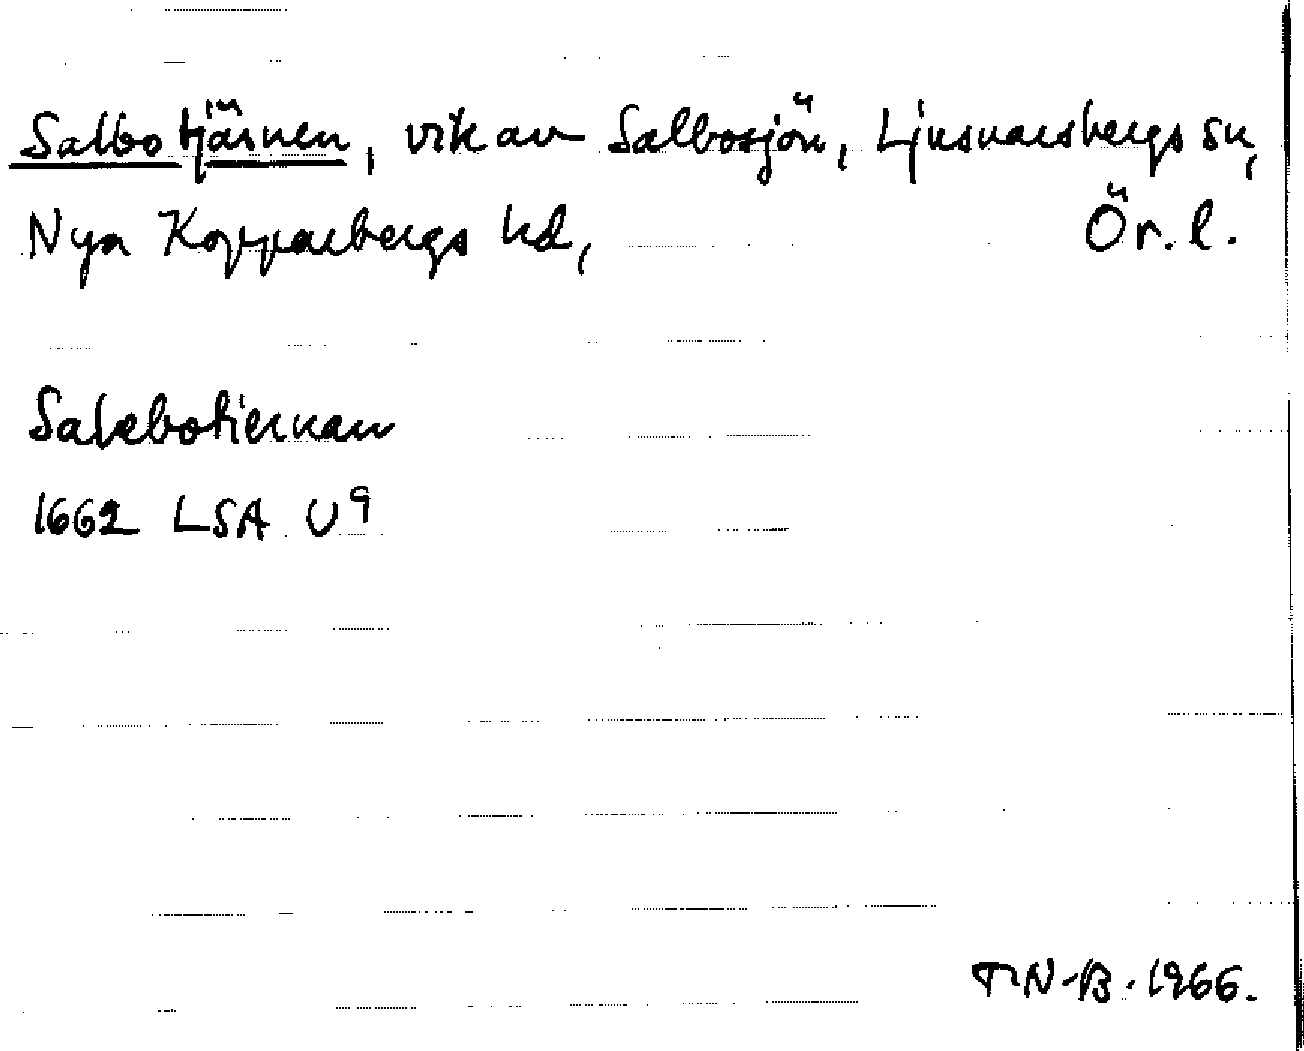 Salbotjärnen, vik av Salbosjön, Ljusnarsbergs sn,
Nya Kopparbergs hd, Ör. l.
Salebotiernan
1662 LSA U⁹
TN-B. 1966.